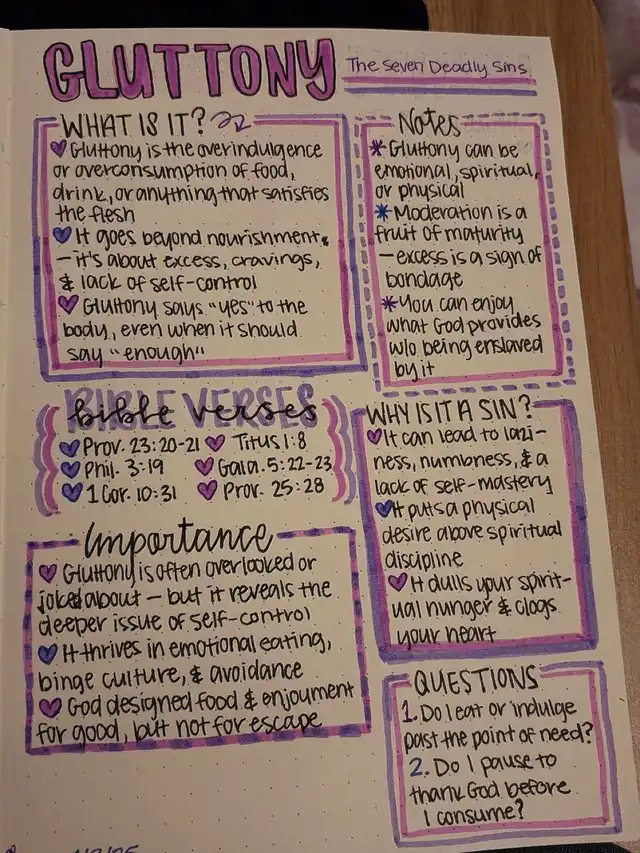 GLUTTONY
The Seven Deadly Sins
WHAT IS IT?
Gluttony is the overindulgence
or overconsumption of food,
drink, or anything that satisfies
the flesh
It goes beyond nourishment
— it's about excess, cravings,
& lack of self-control
Gluttony says "yes" to the
body, even when it should
say "enough"
Notes
*Gluttony can be
emotional, spiritual,
or physical
*Moderation is a
fruit of maturity
— excess is a sign of
bondage
*You can enjoy
what God provides
w/o being enslaved
by it
BIBLE VERSES
bible verses
Prov. 23:20-21 Titus 1:8
Phil. 3:19 Gala. 5:22-23
1 Cor. 10:31 Prov. 25:28
WHY IS IT A SIN?
It can lead to lazi-
ness, numbness, & a
lack of self-mastery
It puts a physical
desire above spiritual
discipline
It dulls your spirit-
ual hunger & clogs
your heart
Importance
Gluttony is often overlooked or
joked about — but it reveals the
deeper issue of self-control
It thrives in emotional eating,
binge culture, & avoidance
God designed food & enjoyment
for good, but not for escape
QUESTIONS
1. Do I eat or indulge
past the point of need?
2. Do I pause to
thank God before
I consume?